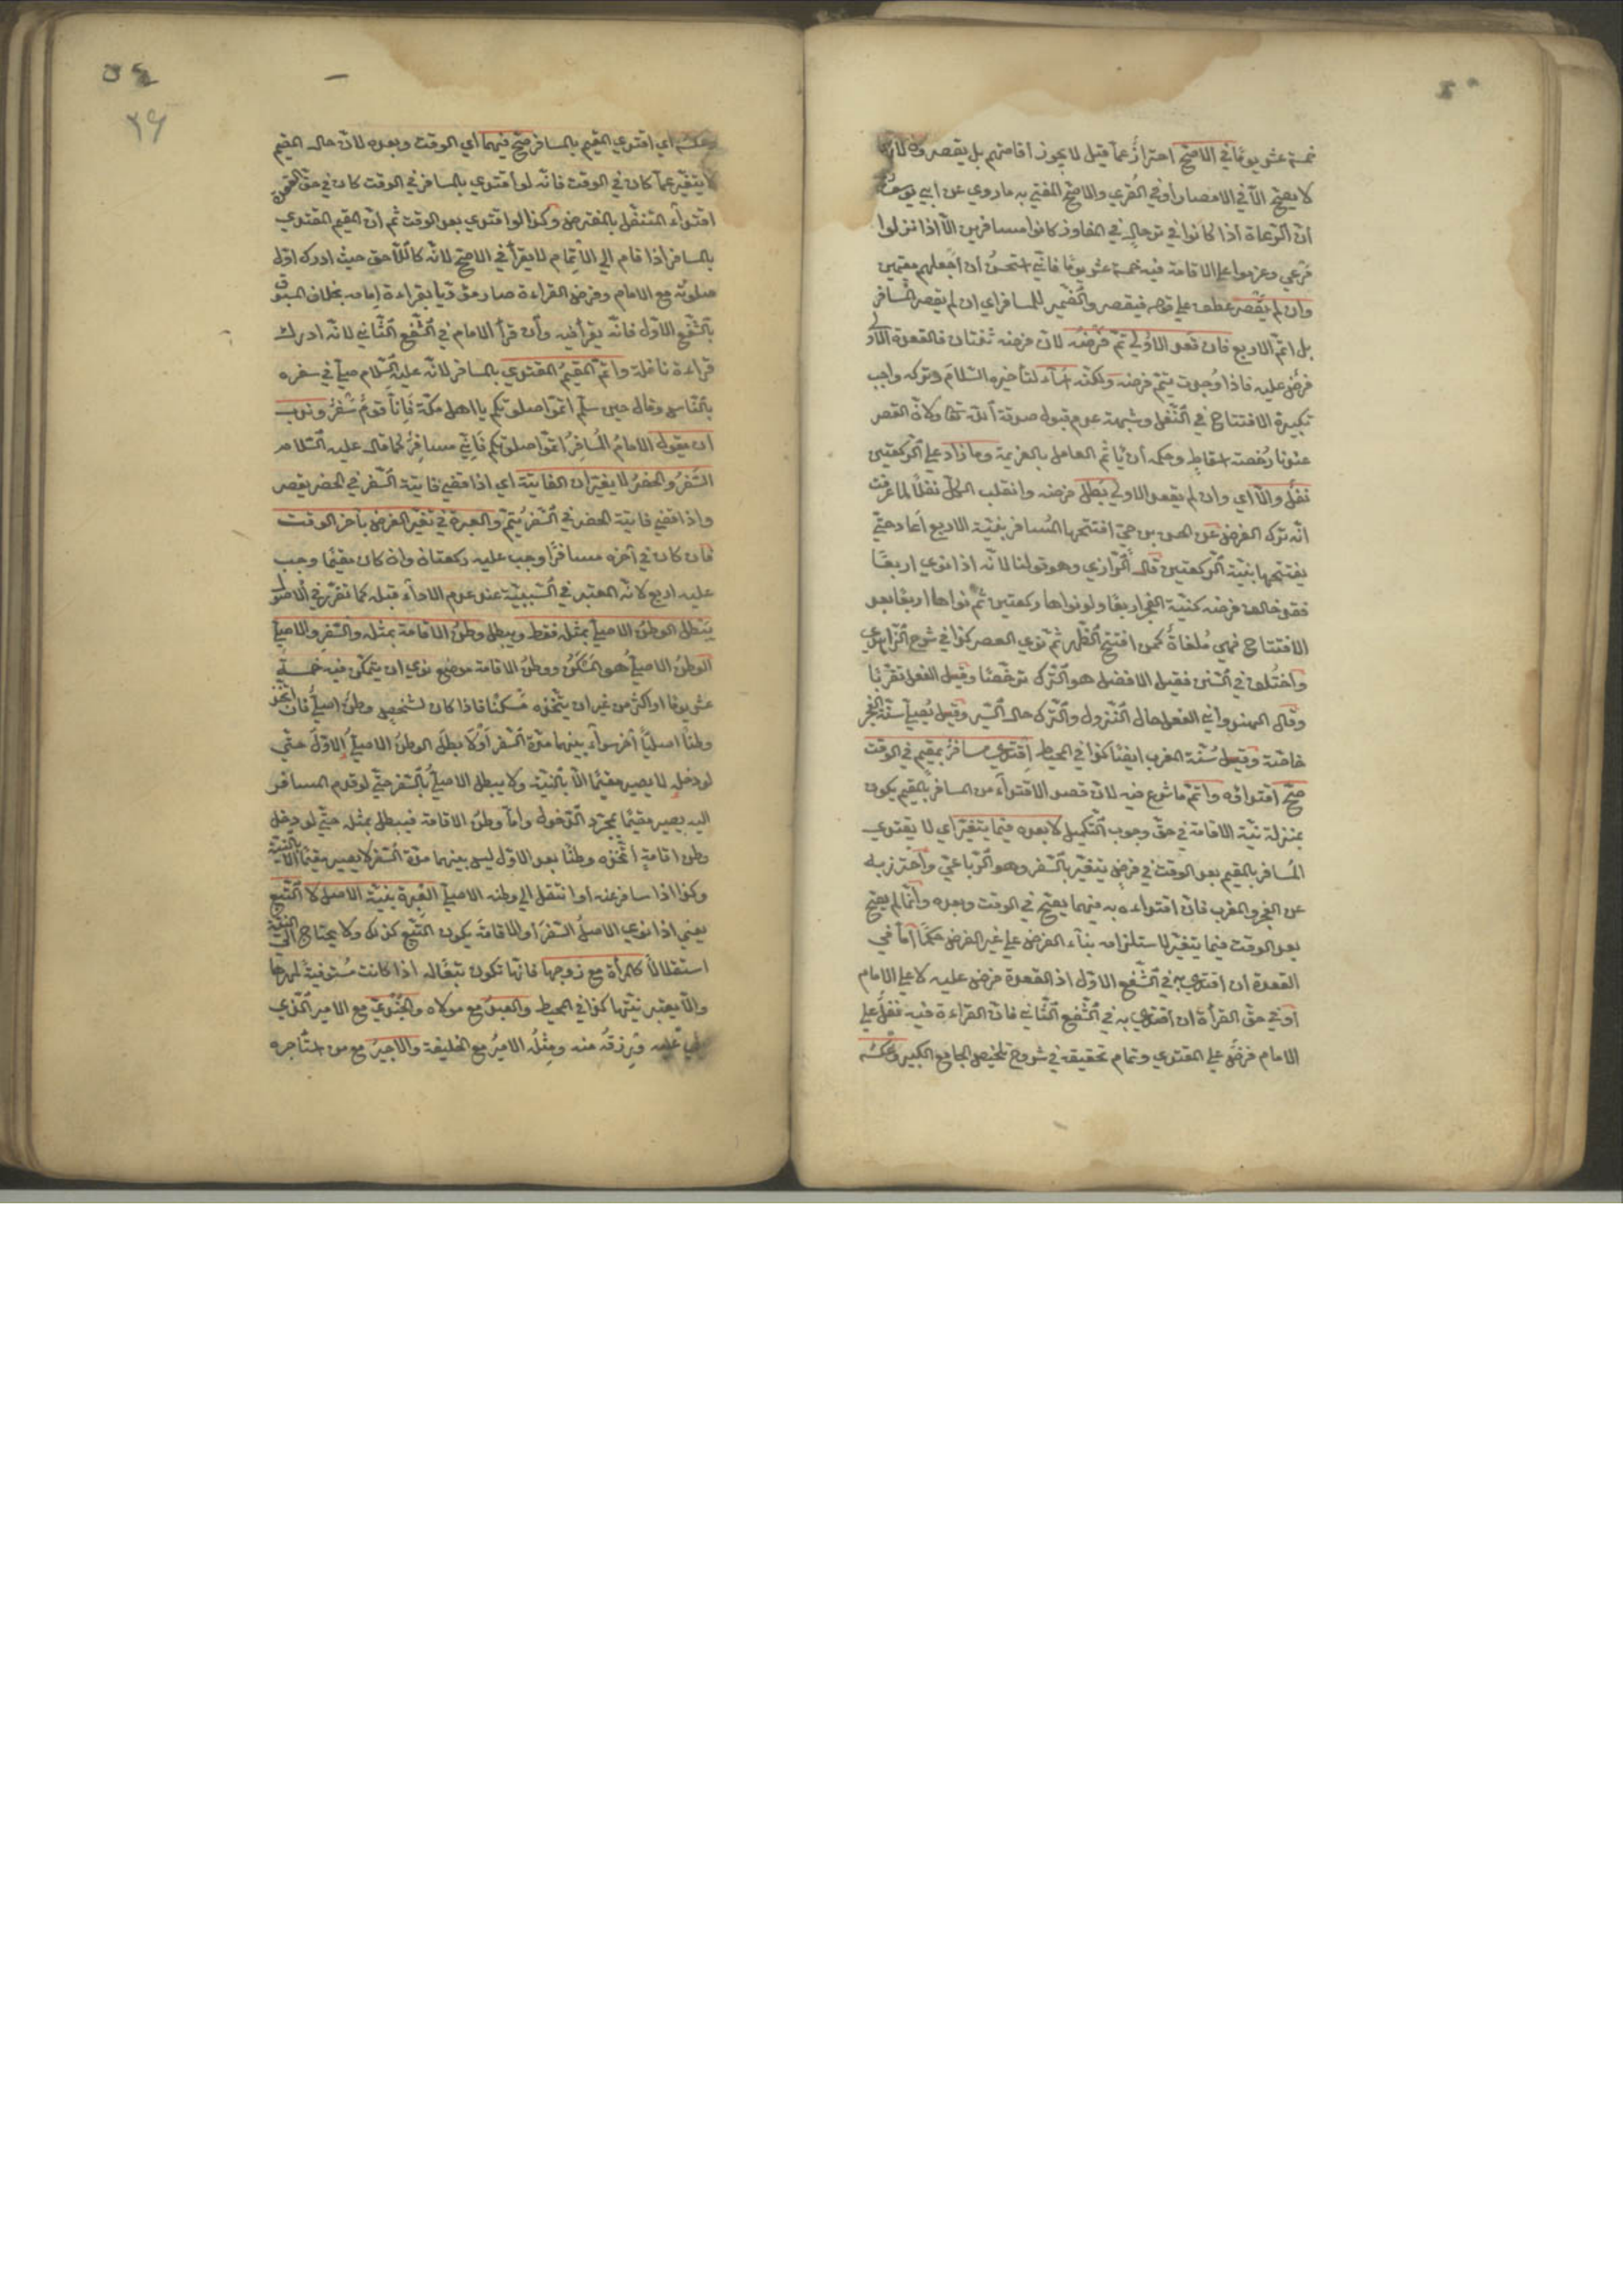 خمسة عشر يوما في الاصح احتراز عما قيل لا يجوز اقامتهم بل يقصرون لانها
لا يصح الا في الامصار او في القرى والاصح المفتي به ما روي عن ابي يوسف
ان الرعاة اذا كانوا في ترحال في المفاوز كانوا مسافرين الا اذا نزلوا
مرعي وعزموا علي الاقامة فيه خمسة عشر يوما فاني استحسن ان اجعلهم مقيمين
وان لم يقصر عطف علي قوله فيقصر والضمير للمسافر اي ان لم يقصر المسافر
بل اتم الاربع فان قعد الاولي تم فرضه لان فرضه ثنتان فالقعدة الاولي
فرض عليه فاذا وجدت يتم فرضه ولكنه اساء لتأخيره السلام وترك واجب
تكبيرة الافتتاح في النفل وشبهة عدم قبول صدقة الله تعا ولان القصر
عندنا رخصة اسقاط وحكمه ان يأثم العامل بالعزيمة وما زاد علي الركعتين
نفل والا اي وان لم يقعد الاولي بطل فرضه وانقلب الكل نفلا لما عرفت
انه ترك الفرض عن الحسن بن حي افتتحها المسافر بنية الاربع اعاد حتي
يفتتحها بنية الركعتين قال الرازي وهو قولنا لانه اذا نوي اربعا
فقد خالف فرضه كنية الفجر اربعا ولو نواها ركعتين ثم نواها اربعا بعد
الافتتاح فهي ملغاة كمن افتتح الظهر ثم نوي العصر كذا في شرح الزاهدي
واختلف في السنن فقيل الافضل هو الترك ترخصا وقيل الفعل تقربا
وقال الهندواني الفعل حال النزول والترك حال السير وقيل يصلي سنة الفجر
خاصة وقيل سنة المغرب ايضا كذا في المحيط اقتدي مسافر بمقيم في الوقت
صح اقتداؤه واتم ما شرع فيه لان قصد الاقتداء من المسافر بالمقيم يكون
بمنزلة نية الاقامة في حق وجوب التكميل لا بعده فيما يتغير اي لا يقتدي
المسافر بالمقيم بعد الوقت في فرض يتغير بالسفر وهو الرباعي واحترز به
عن الفجر والمغرب فان اقتداءه به فيهما يصح في الوقت وبعده وانما لم يصح
بعد الوقت فيما يتغير لاستلزامه بناء الفرض علي غير الفرض حكما اما في
القعدة ان اقتدي به في الشفع الاول اذ القعدة فرض عليه لا علي الامام
او في حق القرأة ان اقتدي به في الشفع الثاني فان القراءة فيه نفل علي
الامام فرض علي المقتدي وتمام تحقيقه في شروح تلخيص الجامع الكبير وعكسه
٣٩
وعكسه اي اقتدي المقيم بالمسافر صح فيهما اي الوقت وبعده لان حال المقيم
لا يتغير عما كان في الوقت فانه لو اقتدي بالمسافر في الوقت كان في حق القعدة
اقتداء المتنفل بالمفترض وكذا لو اقتدي بعد الوقت ثم ان المقيم المقتدي
بالمسافر اذا قام الي الاتمام لا يقرأ في الاصح لانه كاللاحق حيث ادرك اول
صلوته مع الامام وفرض القراءة صار مؤديا بقراءة امامه بخلاف المسبوق
بالشفع الاول فانه يقرأ فيه وان قرأ الامام في الشفع الثاني لانه ادرك
قراءة نافلة واتم المقيم المقتدي بالمسافر لانه عليه السلام صلي في سفره
بالناس وقال حين سلم اتموا صلوتكم يا اهل مكة فانا قوم سفر وندب
ان يقول الامام المسافر اتموا صلوتكم فاني مسافر كما قاله عليه السلام
السفر والحضر لا يغيران الفائتة اي اذا قضي فائتة السفر في الحضر يقصر
واذا قضي فائتة الحضر في السفر يتم والعبرة في تغير الفرض بآخر الوقت
فان كان في آخره مسافرا وجب عليه ركعتان وان كان مقيما وجب
عليه اربع لانه المعتبر في السببية عند عدم الاداء قبله كما تقرر في الاصول
يبطل الوطن الاصلي بمثله فقط ويبطل وطن الاقامة بمثله والسفر والاصلي
الوطن الاصلي هو المسكن ووطن الاقامة موضع نوي ان يتمكن فيه خمسة
عشر يوما او اكثر من غير ان يتخذه مسكنا فاذا كان لشخص وطن اصلي فان اتخذ
وطنا اصليا آخر سواء بينهما مدة السفر او لا بطل الوطن الاصلي الاول حتي
لو دخله لا يصير مقيما الا بالنية ولا يبطل الاصلي بالسفر حتي لو قدم المسافر
اليه يصير مقيما بمجرد الدخول واما وطن الاقامة فيبطل بمثله حتي لو دخل
وطن اقامة اتخذه وطنا بعد الاول ليس بينهما مدة السفر لا يصير مقيما الا بالنية
وكذا اذا سافر عنه او انتقل الي وطنه الاصلي العبرة بنية الاصل لا التبع
يعني اذا نوي الاصل السفر او الاقامة يكون التبع كذلك ولا يحتاج الي النية
استقلالا كالمرأة مع زوجها فانها تكون تبعا له اذا كانت مستوفية لمهرها
والا يعتبر نيتها كذا في المحيط والعبد مع مولاه والجندي مع الامير الذي
يلي عليه ورزقه منه ومثله الامير مع الخليفة والاجير مع من استأجره